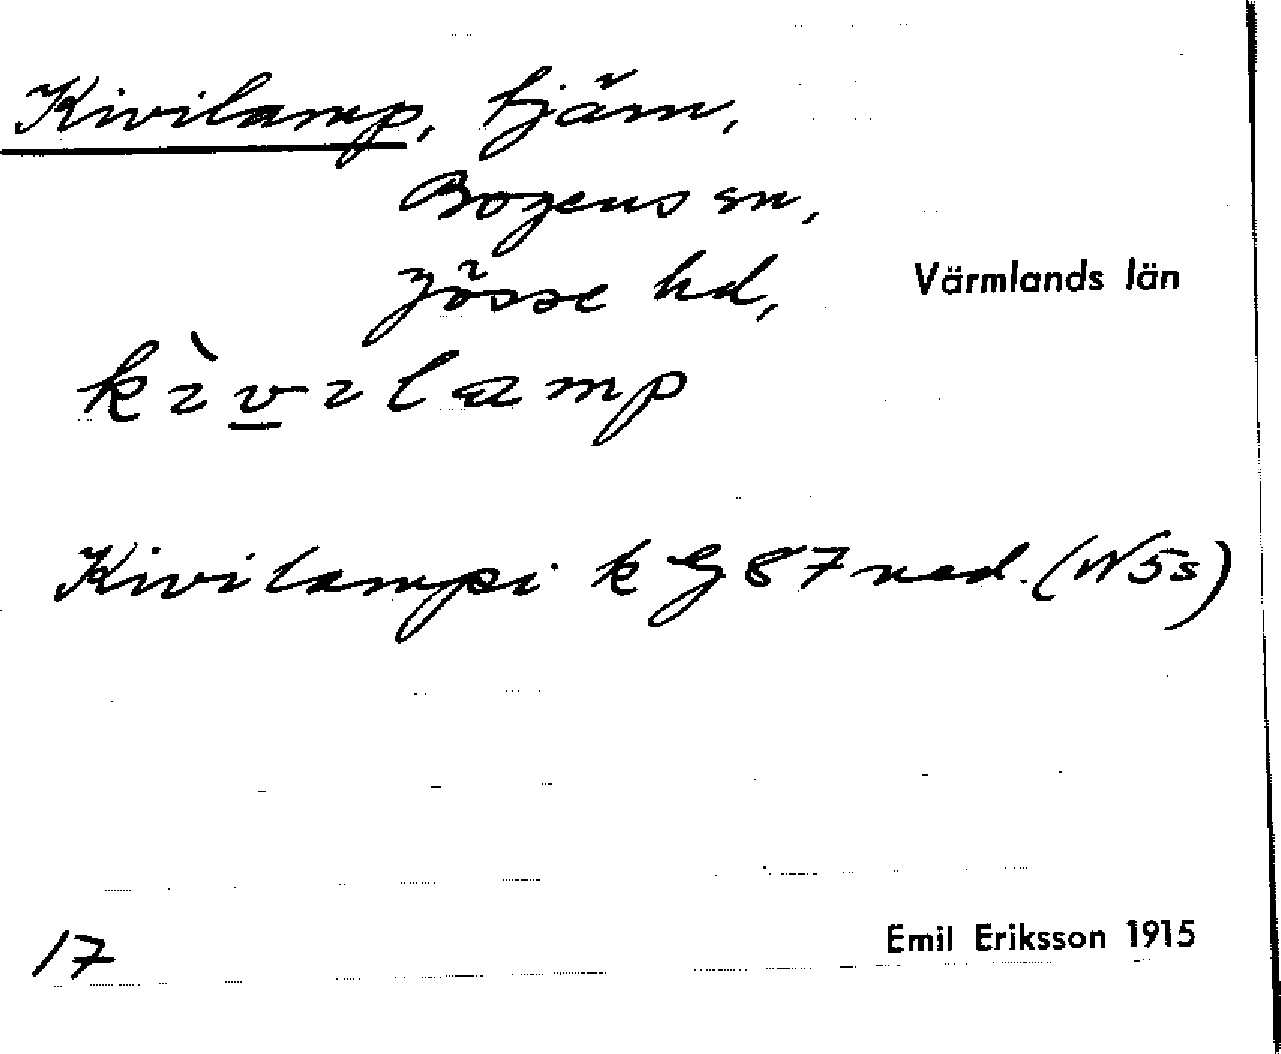 Kivilamp, tjärn,
Bogens sn,
Jösse hd, Värmlands län
kìvilamp
Kivilampi k G 87 ned. (N5s)
17
Emil Eriksson 1915